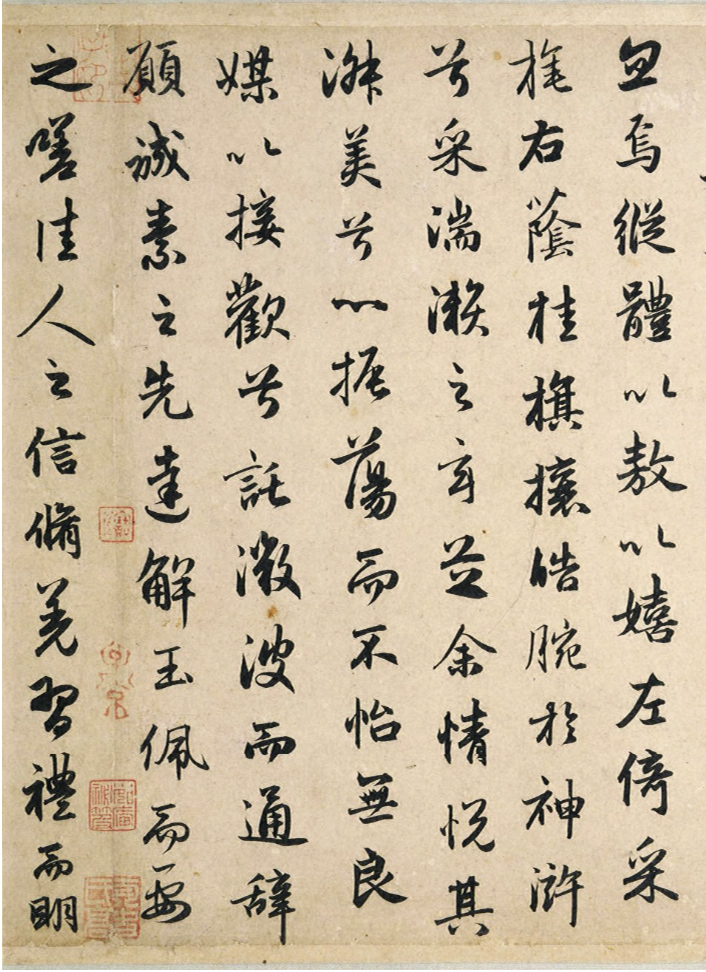 忽焉縱體以敖以嬉左倚采
旄右蔭桂旗攘皓腕於神滸
兮采湍瀨之玄芝余情悅其
淑美兮心振蕩而不怡無良
媒以接歡兮託微波而通辭
願誠素之先達解玉佩而要
之嗟佳人之信脩羌習禮而明